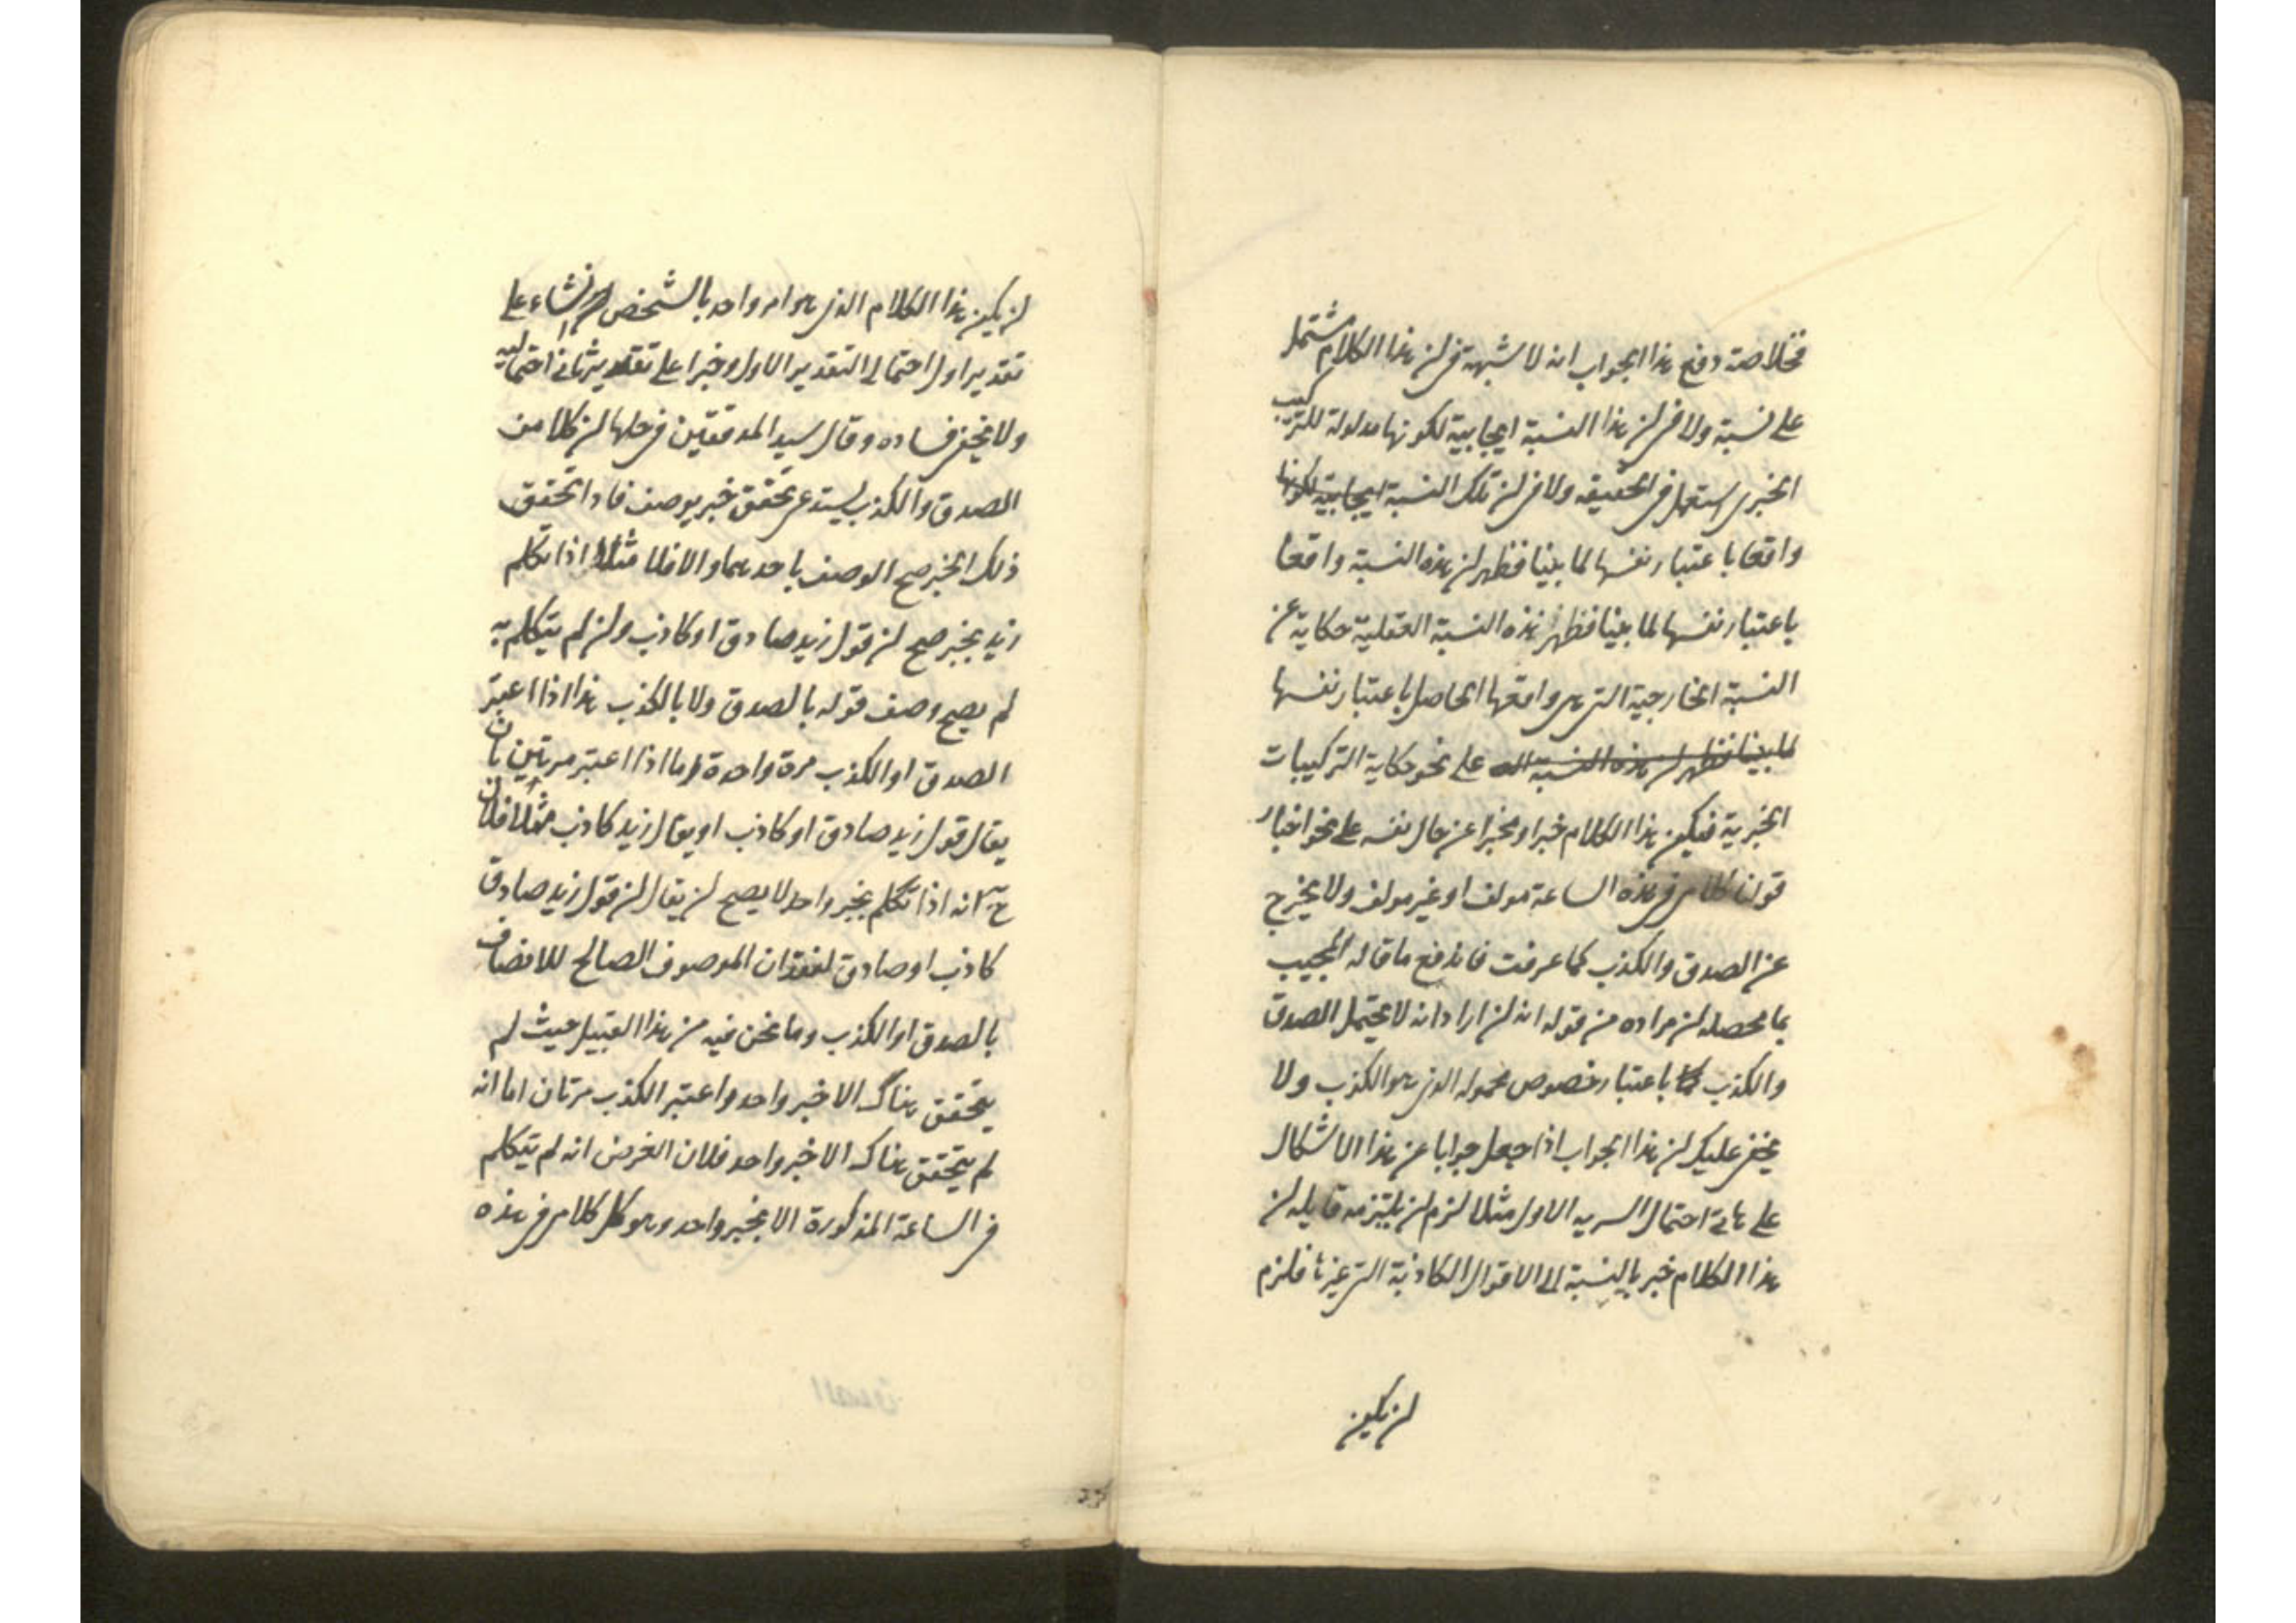 فخلاصة دفع هذا الجواب انه لا شبهة فى ان هذا الكلام مشتمل
على نسبة ولا فى ان هذا النسبة ايجابية لكونها مدلولة للتركيب
الخبرى استعمل فى الحقيقه ولا فى ان تلك النسبة ايجابية لكونها
واقعا باعتبار نفسها لما بينا فظهر ان هذه النسبة واقعا
باعتبار نفسها لما بينا فظهر هذه النسبة العقلية حكاية عن
النسبة الخارجية التى هى واقعها الحاصل باعتبار نفسها
لما بينا فظهر ان هذه النسبة على نحو حكاية التركيبات
الخبرية فيكون هذا الكلام خبرا ومخبرا عن حال نفسه على نحو اخبار
قولنا كلامى فى هذه الساعة مولف او غير مولف ولا يخرج
عن الصدق والكذب كما عرفت فاندفع ما قاله المجيب
بما محصله ان مراده من قوله انه ان اراد انه لا يحتمل الصدق
والكذب باعتبار خصوص محموله الذى هو الكذب ولا
يخفى عليك ان هذا الجواب اذا جعل جوابا عن هذا الاشكال
على احتمال السريه الاول مثلا لزم ان يلتزمه قايله ان
هذا الكلام خبر بالنسبة الى الاقوال الكاذبة التى غيرها فلزم
ان يكون
ان يكون هذا الكلام الذى هو امر واحد بالشخص انشاء على
تقدير اول احتمالى التقدير الاول وخبرا على تقدير ثانى احتماليه
ولا يخفى فساده وقال سيد المدققين فى حلها ان كلا من
الصدق والكذب يستدعى تحقق خبر يوصف فاذا تحقق
ذلك الخبر صح الوصف باحدهما والا فلا مثلا اذا تكلم
زيد بخبر صح ان قول زيد صادق او كاذب وان لم يتكلم به
لم يصح وصف قوله بالصدق ولا بالكذب هذا اذا اعتبر
الصدق او الكذب مرة واحدة واما اذا اعتبر مرتين بان
يقال قول زيد صادق او كاذب او يقال زيد كاذب مثلا فلان
ح انه اذا تكلم بخبر واحد لا يصح ان يقال ان قول زيد صادق
كاذب او صادق لفقدان الموصوف الصالح للاتصاف
بالصدق او الكذب وما نحن فيه من هذا القبيل حيث لم
يتحقق هناك الا خبر واحد واعتبر الكذب مرتان اما انه
لم يتحقق هناك الا خبر واحد فلان الفرض انه لم يتكلم
فى الساعة المذكورة الا بخبر واحد وهو كل كلامى فى هذه